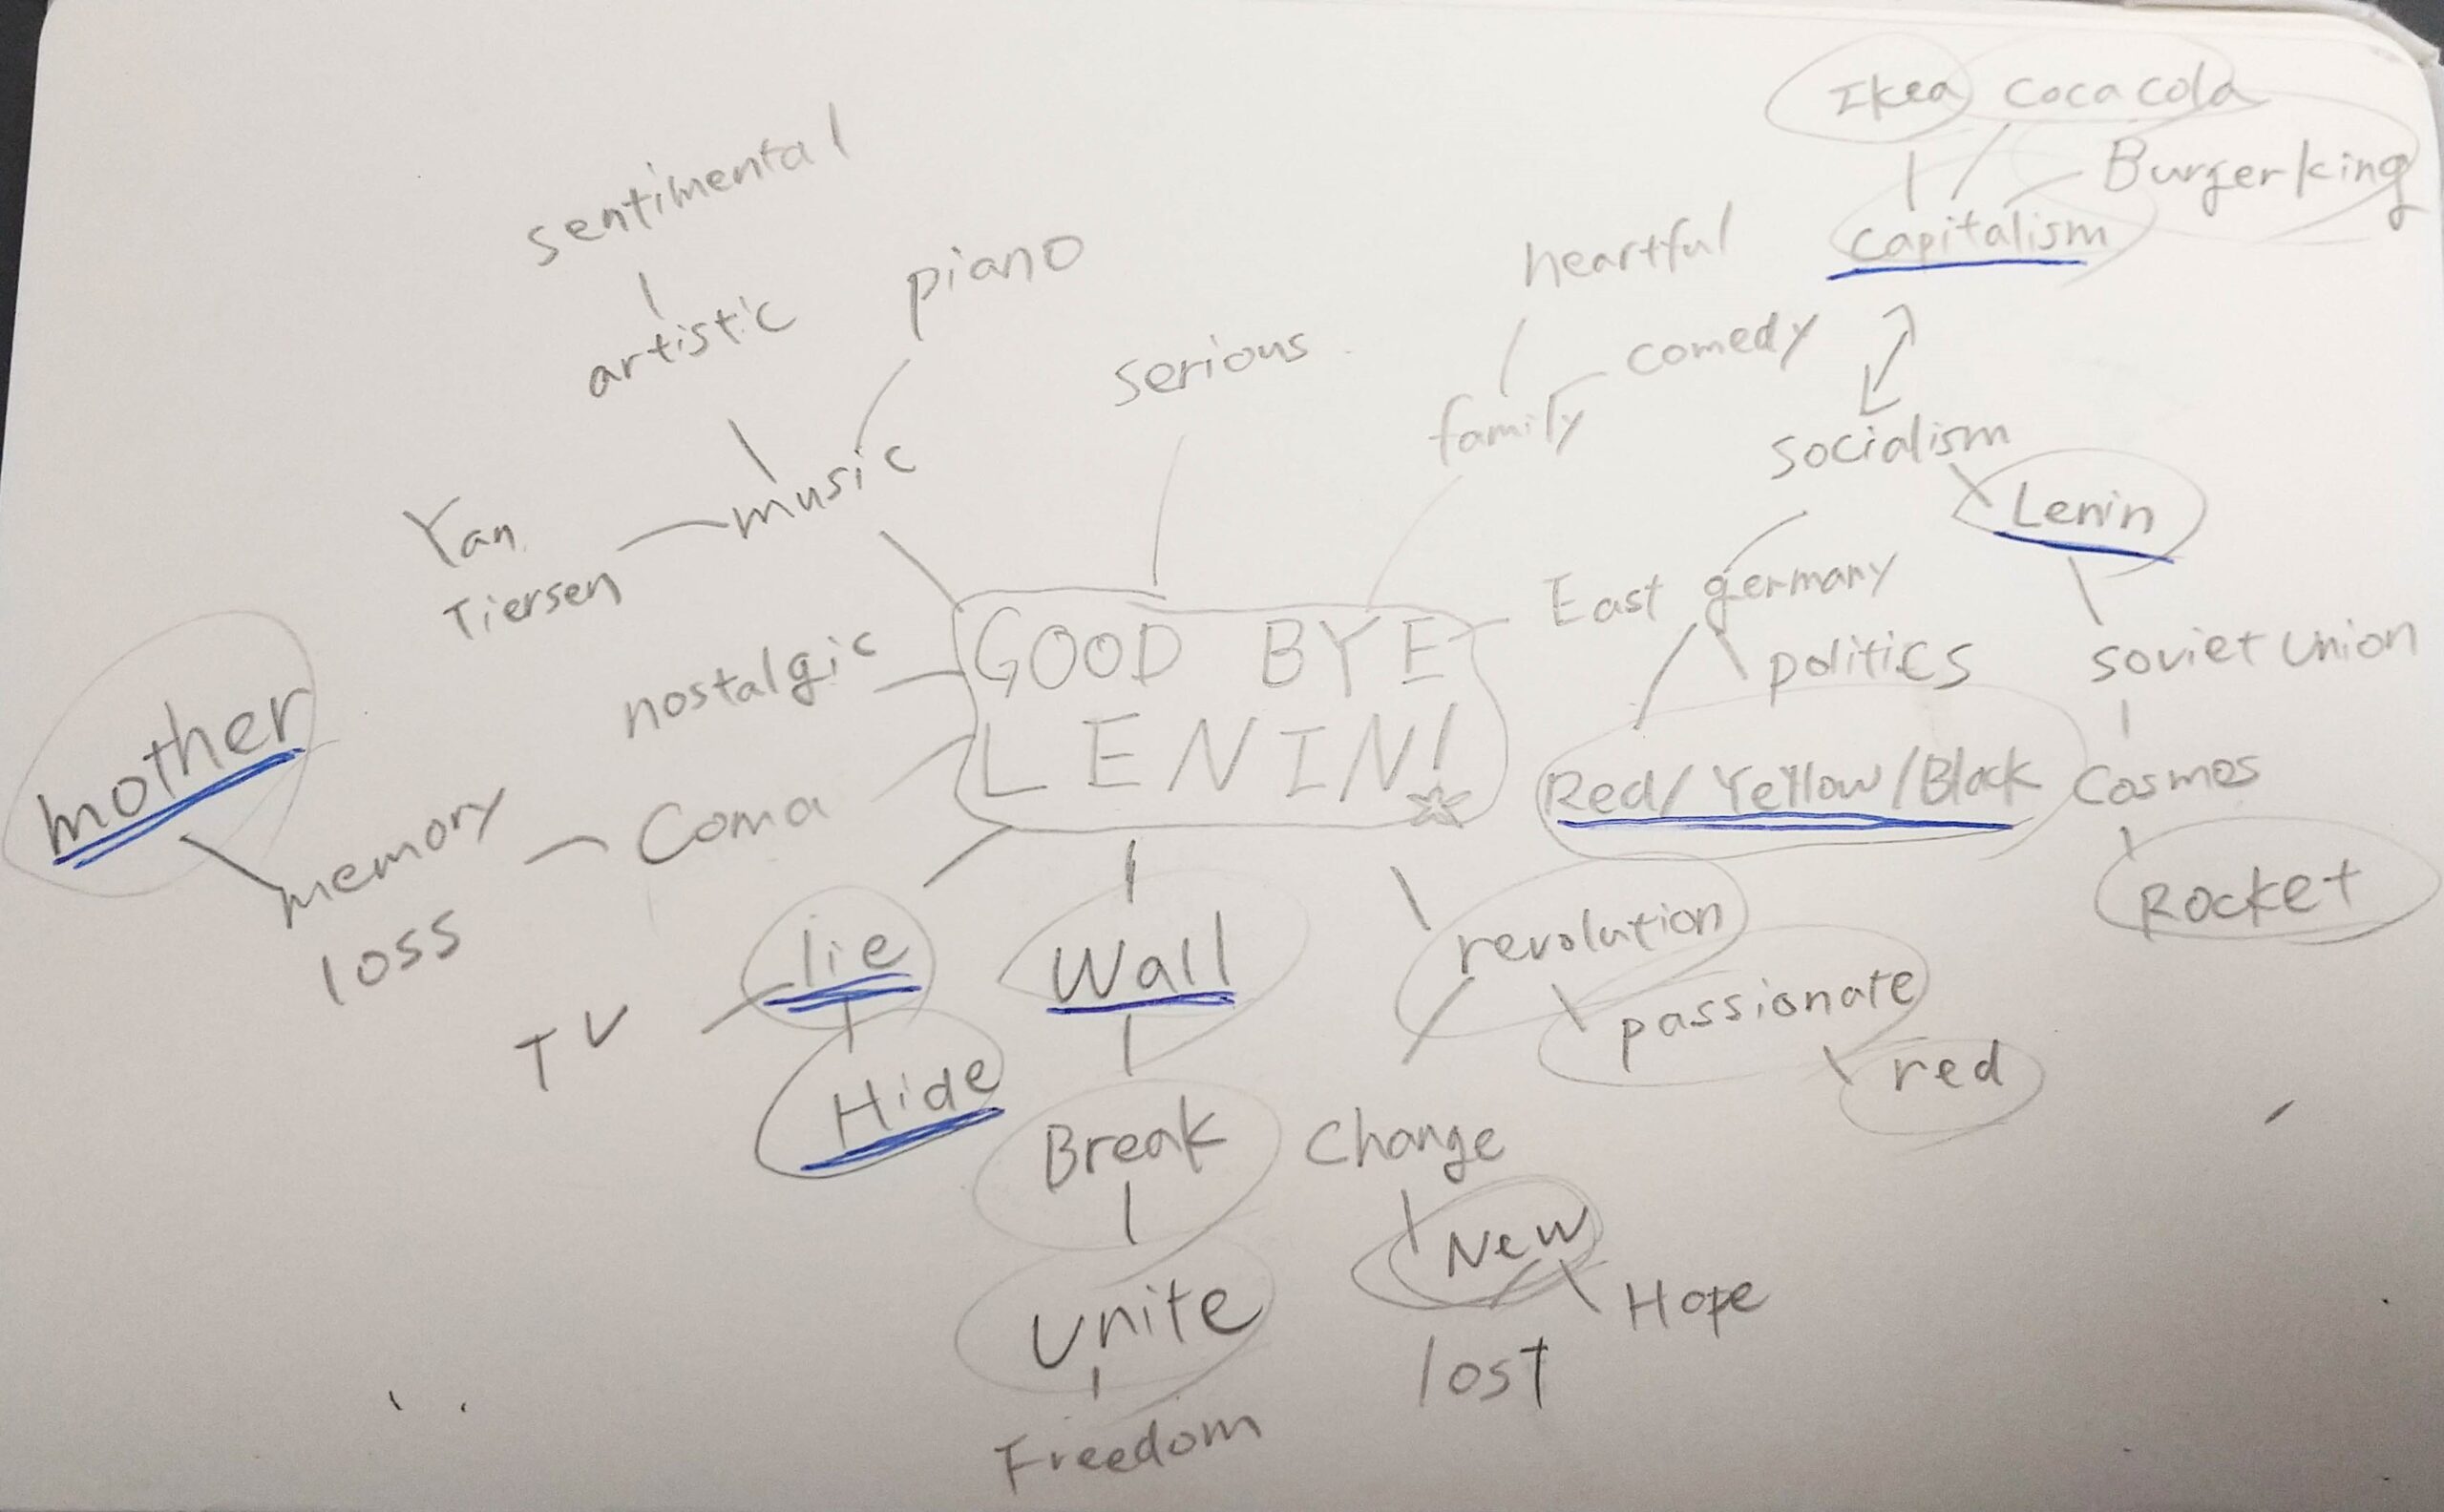 Ikea coca cola
Burger king
capitalism
sentimental
piano
heartful
artistic
serious
comedy
family
socialism
music
Lenin
Yan
Tiersen
East germany
GOOD BYE
LENIN!
nostalgic
politics
soviet union
mother
Red/Yellow/Black
Cosmos
memory
loss
Coma
Rocket
lie
Wall
revolution
TV
passionate
red
Hide
Break
Change
New
Unite
Hope
lost
Freedom